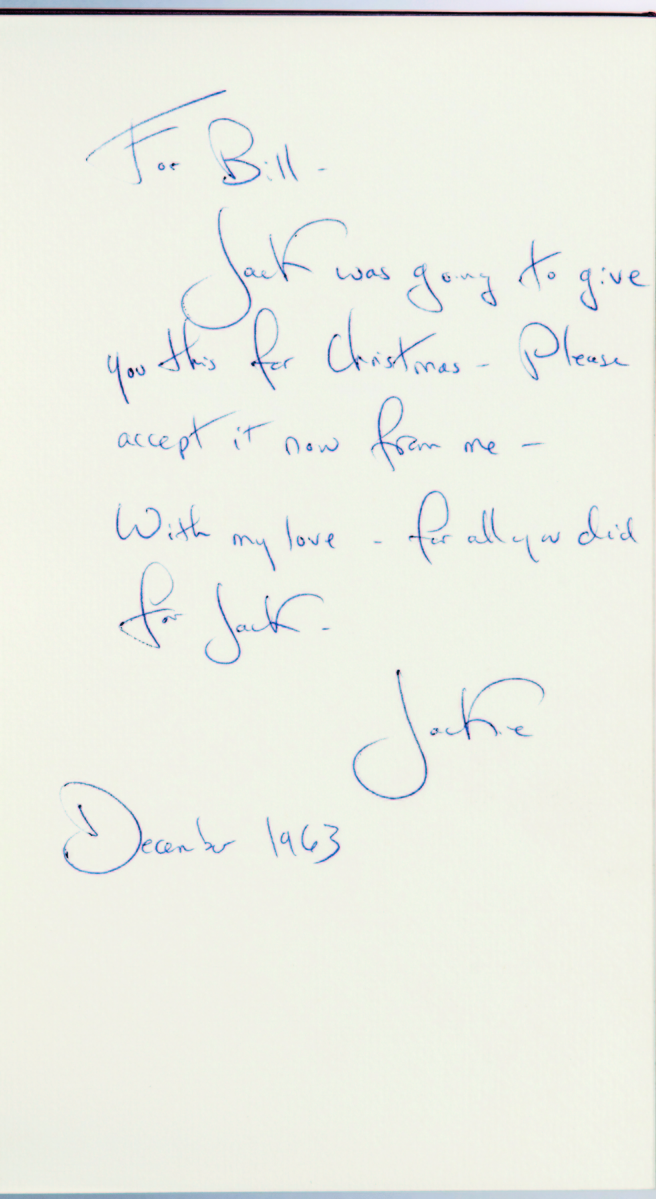 For Bill -
Jack was going to give
you this for Christmas - Please
accept it now from me -
With my love - for all you did
for Jack -
Jackie
December 1963